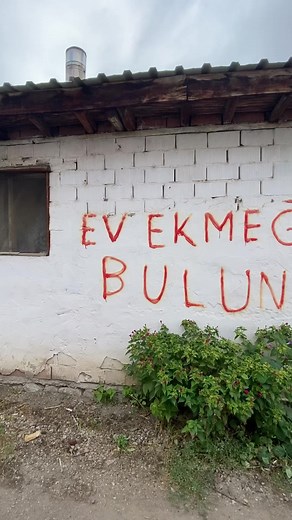 EV EKMEĞ
BULUN